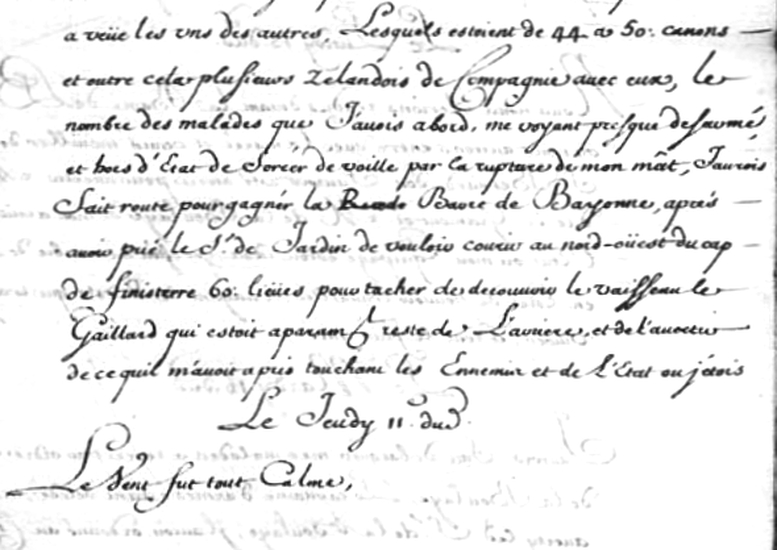 a veüe les uns des autres, Lesquels estoient de 44 a 50. canons
et outre cela plusieurs Zelandois de Compagnie avec eux, le
nombre des malades que J'avois abord, me voyant presque desarmé
et hors d'Etat de forcer de voille par la rupture de mon mât, J'aurois
fait route pour gagner la Barre de Bayonne, aprés
avoir prié le Sr. de Jardin de vouloir courir au nord-oüest du cap
de finisterre 60. lieües pour tacher de decouvrir le vaisseau le
Gaillard qui estoit aparamt. reste de L'arriere, et de l'avertir
de ce quil m'avoit apris touchant les Ennemis et de L'Etat ou j'étois
Le Jeudy 11. dud.
Le Vent fut tout Calme,